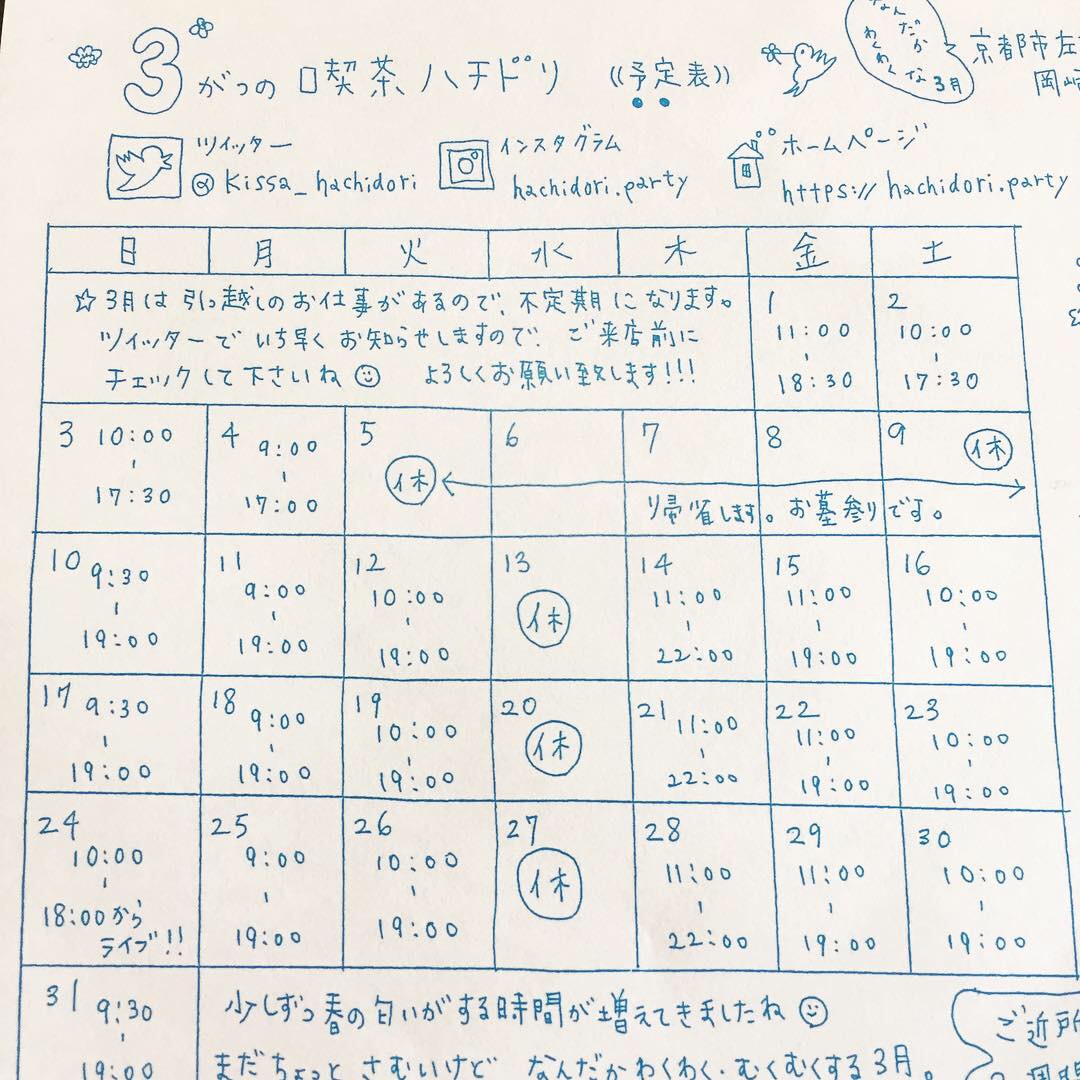 3がつの 喫茶ハチドリ ((予定表))
なんだか
わくわく
な3月
京都市左
岡崎
ツイッター
@kissa_hachidori
インスタグラム
hachidori.party
ホームページ
https://hachidori.party
日 月 火 水 木 金 土
☆3月は引っ越しのお仕事があるので、不定期になります。
ツイッターでいち早くお知らせしますので、ご来店前に
チェックして下さいね☺ よろしくお願い致します!!!
1 11:00 - 18:30
2 10:00 - 17:30
3 10:00 - 17:30
4 9:00 - 17:00
5 休
6
7
8
9 休
帰省します。お墓参りです。
10 9:30 - 19:00
11 9:00 - 19:00
12 10:00 - 19:00
13 休
14 11:00 - 22:00
15 11:00 - 19:00
16 10:00 - 19:00
17 9:30 - 19:00
18 9:00 - 19:00
19 10:00 - 19:00
20 休
21 11:00 - 22:00
22 11:00 - 19:00
23 10:00 - 19:00
24 10:00 - 18:00から
ライブ!!
25 9:00 - 19:00
26 10:00 - 19:00
27 休
28 11:00 - 22:00
29 11:00 - 19:00
30 10:00 - 19:00
31 9:30 - 19:00
少しずつ春の匂いがする時間が増えてきましたね☺
まだちょっとさむいけど なんだかわくわく・むくむくする3月。
ご近所